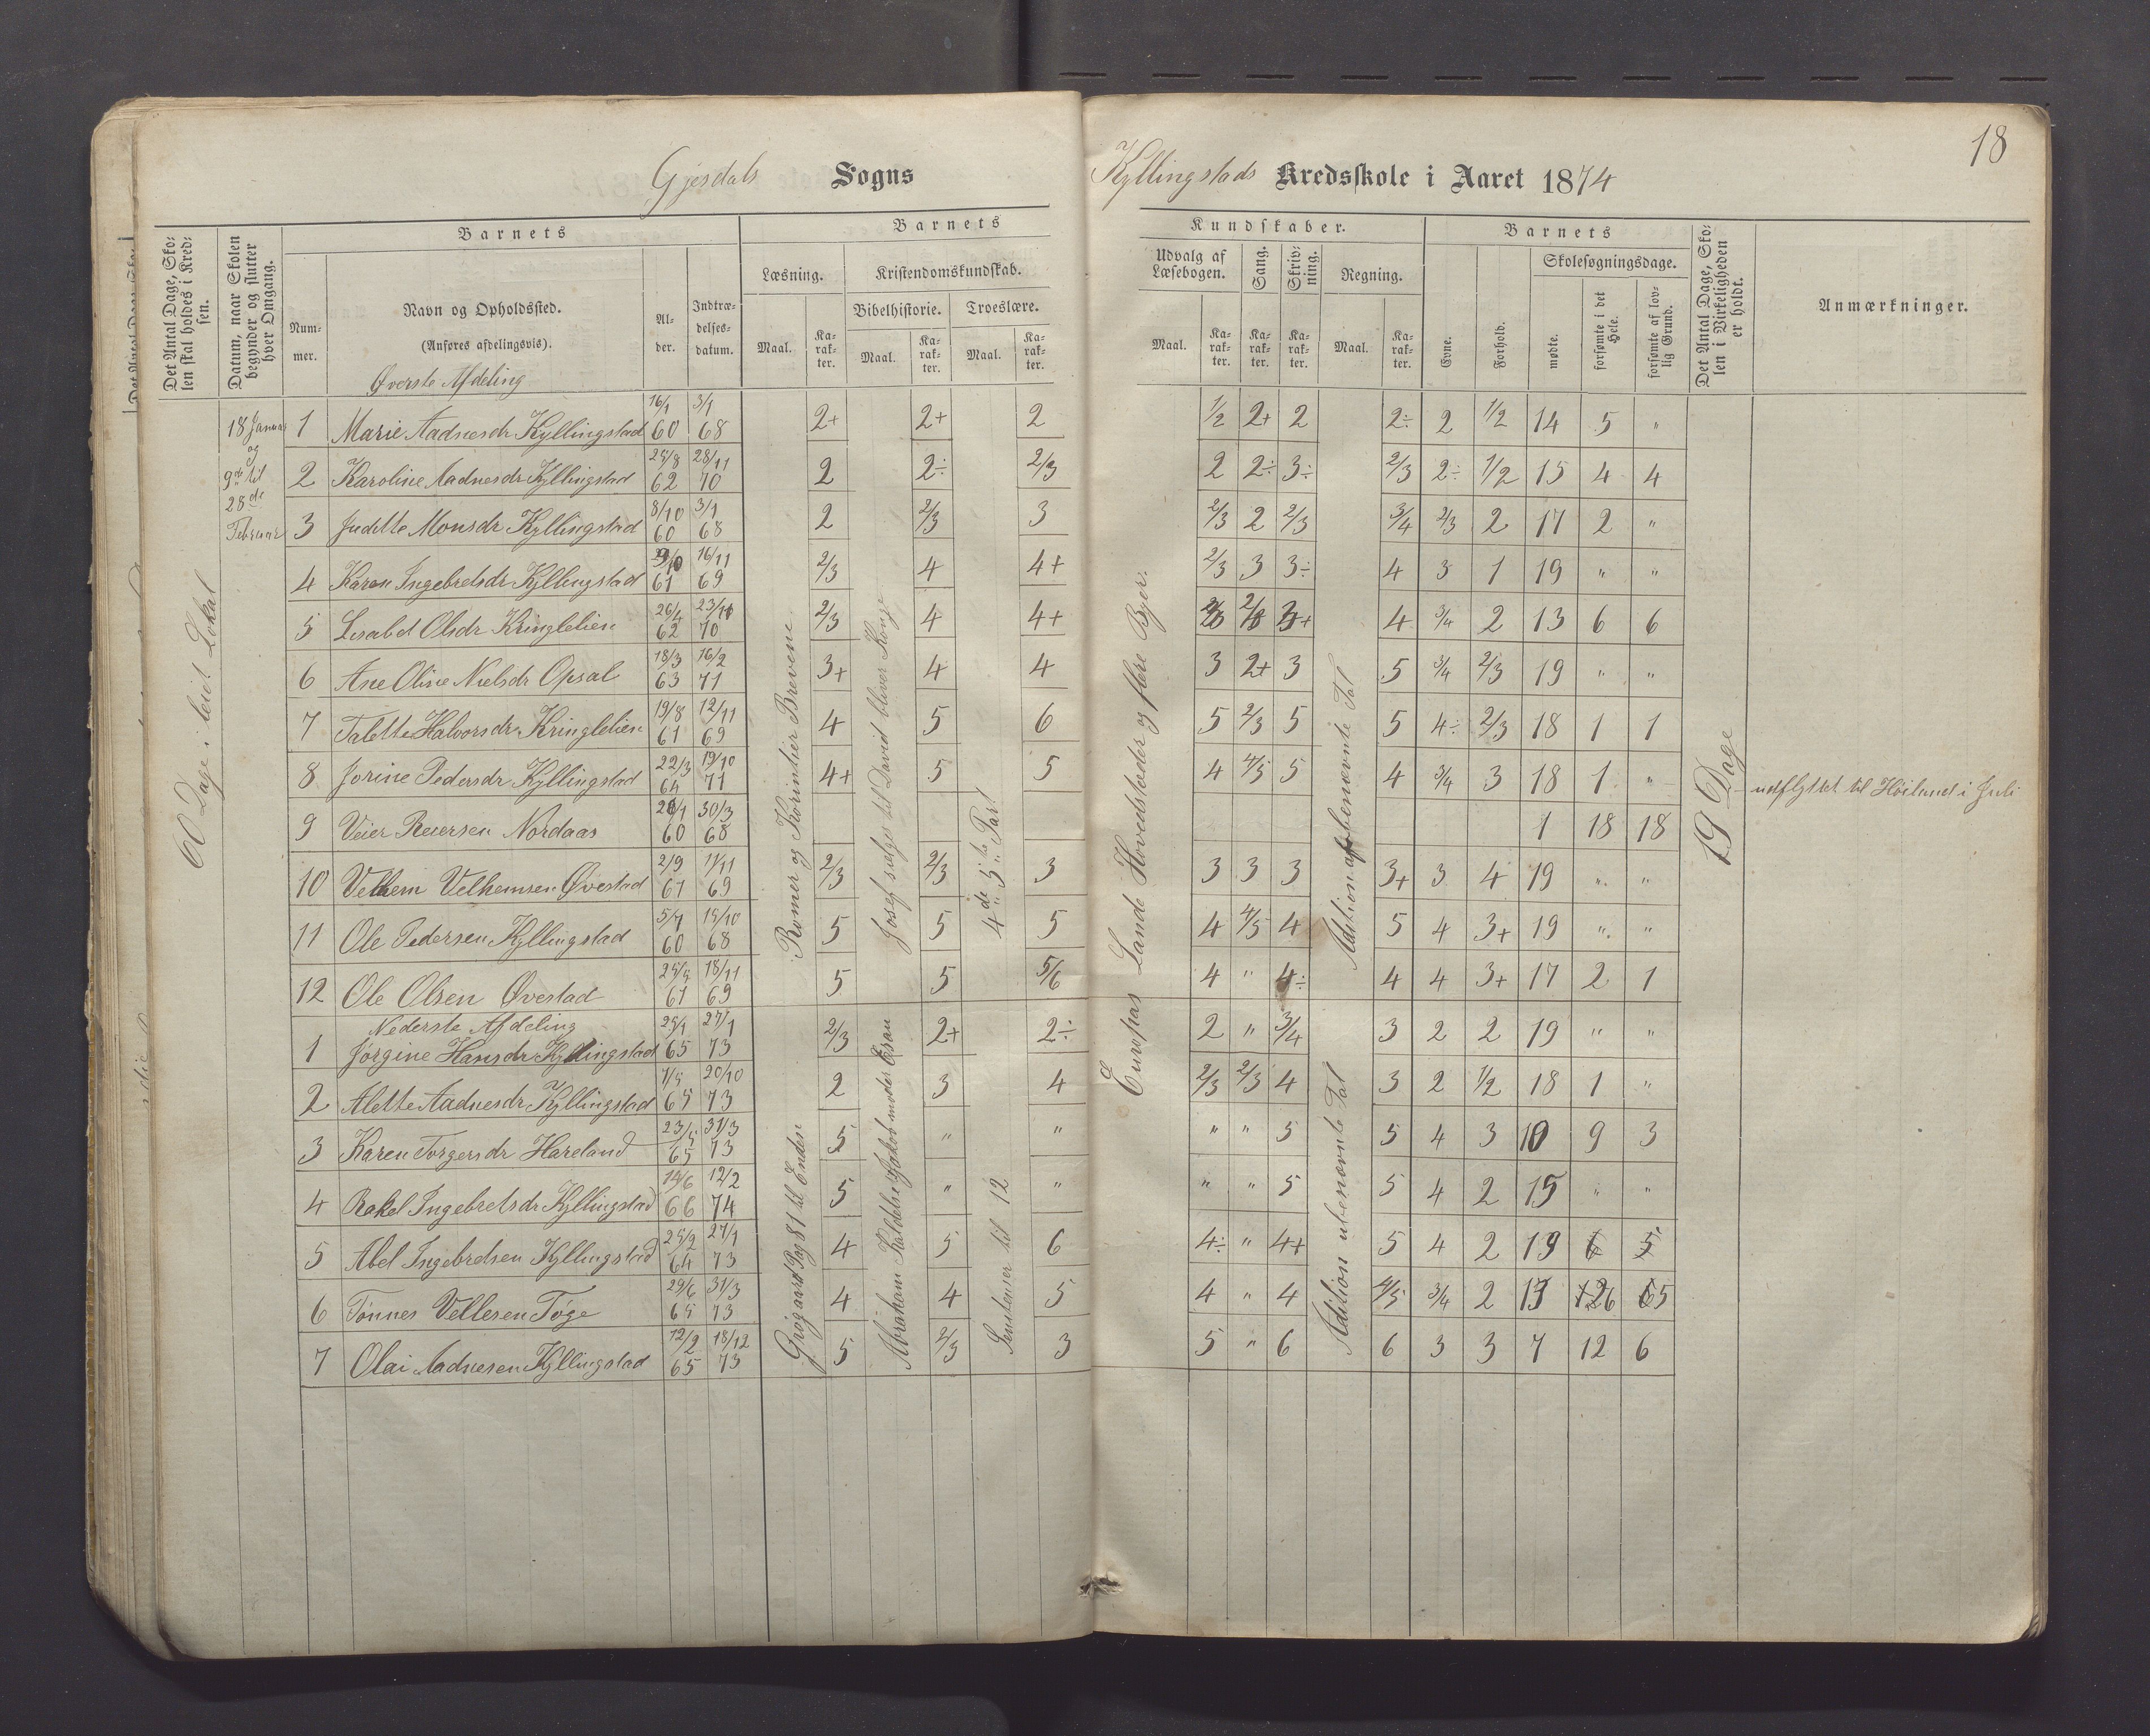 18
Gjesdals Sogns Kyllingstads Kredsskole i Aaret 1874
Det Antal Dage, Skolen skal holdes i Kredsen.
Datum, naar Skolen begynder og slutter hver Omgang.
Barnets
Nummer.
Navn og Opholdssted.
(Anføres afdelingsvis).
Alder.
Indtrædelsesdatum.
Barnets Kundskaber.
Læsning.
Maal.
Karakter.
Kristendomskundskab.
Bibelhistorie.
Maal.
Karakter.
Troeslære.
Maal.
Karakter.
Udvalg af Læsebogen.
Maal.
Karakter.
Sang.
Karakter.
Skrivning.
Karakter.
Regning.
Maal.
Karakter.
Barnets
Evne.
Forhold.
Skolesøgningsdage.
mødte.
forsømte i det Hele.
forsømte af lovlig Grund.
Det Antal Dage, Skolen i Virkeligheden er holdt.
Anmærkninger.
60 Dage i leiet Lokal
18 Januar og 9de til 28de Februar
Øverste Afdeling
1 Marie Aadnesdr Kyllingstad 16/1 60 3/1 68 2+ 2+ 2 1/2 2+ 2 2÷ 2 1/2 14 5 "
2 Karoline Aadnesdr Kyllingstad 25/8 62 28/11 70 2 2÷ 2/3 2 2÷ 3÷ 2/3 2÷ 1/2 15 4 4
3 Juditte Monsdr Kyllingstad 8/10 60 3/1 68 2 2/3 3 2/3 2 2/3 3/4 2/3 2 17 2 "
4 Karen Ingebretsdr Kyllingstad 61 16/11 69 2/3 4 4+ 2/3 3 3÷ 4 3 1 19 " "
5 Lisabet Olsdr Kringlelien 26/4 62 70 2/3 4 4+ 4 3/4 2 13 6 6
6 Ane Oline Nielsdr Opsal 18/3 63 16/2 71 3+ 4 4 3 2+ 3 5 3/4 2/3 19 " "
7 Talette Halvorsdr Kringlelien 19/8 61 12/11 69 4 5 6 5 2/3 5 5 4÷ 2/3 18 1 1
8 Jorine Pedersdr Kyllingstad 22/3 64 19/10 71 4+ 5 5 4 4/5 5 4 3/4 3 18 1 "
9 Veier Reiersen Nordaas 60 30/3 68 1 18 18 udflyttet til Høiland i Juli
10 Velhem Velhemsen Øvestad 2/9 61 11/11 69 2/3 2/3 3 3 3 3 3+ 3 4 19 " "
11 Ole Pedersen Kyllingstad 60 15/10 68 5 5 5 4 4/5 4 5 4 3+ 19 " "
12 Ole Olsen Øvestad 25/5 61 18/11 69 5 5 5/6 4 " 4÷ 4 4 3+ 17 2 1
Nederste Afdeling
1 Jørgine Hansdr Kyllingstad 25/1 65 27/1 73 2/3 2+ 2÷ 2 " 3/4 3 2 2 19 " "
2 Alette Aadnesdr Kyllingstad 1/5 65 20/10 73 2 3 4 2/3 2/3 4 3 2 1/2 18 1 "
3 Karen Torgersdr Hareland 23/5 65 31/3 73 5 " " " " 5 5 4 3 10 9 3
4 Rakel Ingebretsdr Kyllingstad 14/6 66 12/2 74 5 " " " " 5 5 4 2 15 " "
5 Abel Ingebretsen Kyllingstad 25/2 64 27/1 73 4 5 6 4÷ " 4+ 5 4 2 19 6 5
6 Tønnes Vellesen Tøge 29/6 65 31/3 73 4 4 5 4 " 4 4/5 3/4 2 13 6 5
7 Olai Aadnesen Kyllingstad 12/2 65 18/12 73 5 2/3 3 5 " 6 6 3 3 7 12 6
Romer og Korintier Brevene
Josef sælges til David bliver Konge
4de 5te Part
Europas Lande Hovedstæder og flere Byer.
Adition af benævnte Tal
19 Dage
Grøgaard Pag 81 til Enden
Abrahams Kaldelse til Jakob møder Esau
Sentenser til 12
Adition ubenævnte Tal